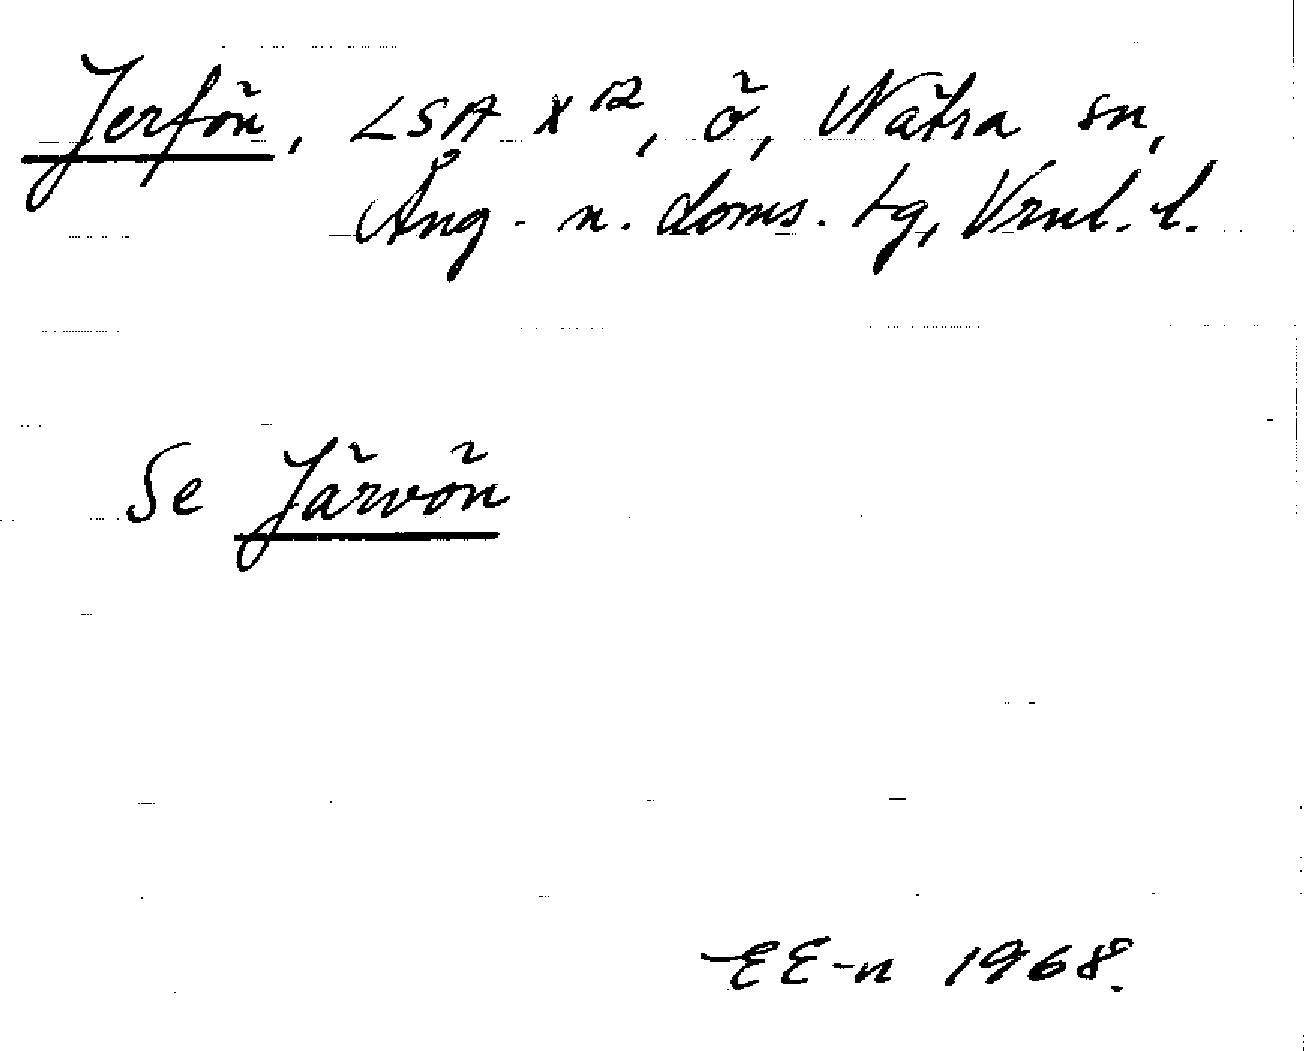 Jerfön, LSA X¹², ö, Nätra sn,
Ång. n. doms. tg, Vrnl. l.
Se Järvön
EE-n 1968.